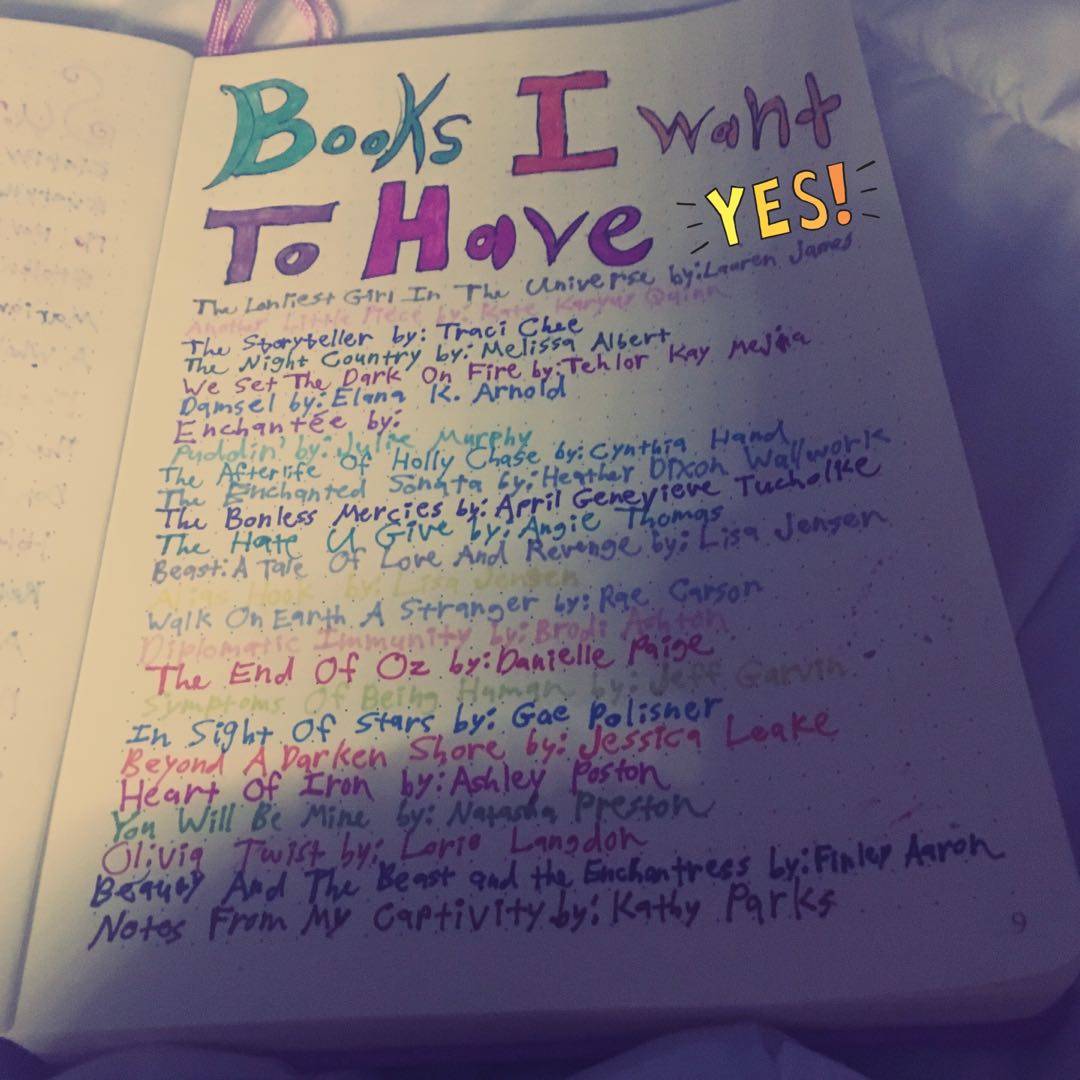 Books I want
To Have YES!
The Lonliest Girl In The Universe by: Lauren James
Another Little Piece by: Kate Karyus Quinn
The Storyteller by: Traci Chee
The Night Country by: Melissa Albert
We Set The Dark On Fire by: Tehlor Kay Mejia
Damsel by: Elana K. Arnold
Enchantée by:
Puddin' by: Julie Murphy
The Afterlife Of Holly Chase by: Cynthia Hand
The Enchanted Sonata by: Heather Dixon Wallwork
The Bonless Mercies by: April Genevieve Tucholke
The Hate U Give by: Angie Thomas
Beast: A Tale Of Love And Revenge by: Lisa Jensen
Alias Hook by: Lisa Jensen
Walk On Earth A Stranger by: Rae Carson
Diplomatic Immunity by: Brodi Ashton
The End Of Oz by: Danielle Paige
Symptoms Of Being Haman by: Jeff Garvin
In Sight Of Stars by: Gae Polisner
Beyond A Darken Shore by: Jessica Leake
Heart Of Iron by: Ashley Poston
You Will Be Mine by: Natasha Preston
Olivia Twist by: Lorie Langdon
Beauty And The Beast and the Enchantress by: Finley Aaron
Notes From My Captivity by: Kathy Parks
9